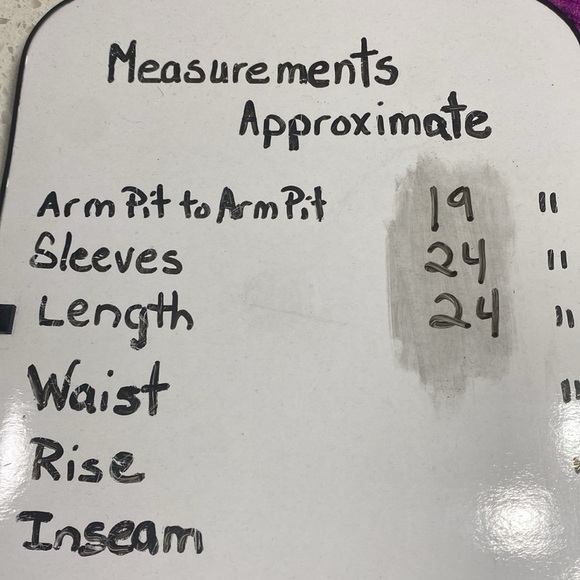 Measurements
Approximate
Arm Pit to Arm Pit 19 "
Sleeves 24 "
Length 24 "
Waist "
Rise
Inseam